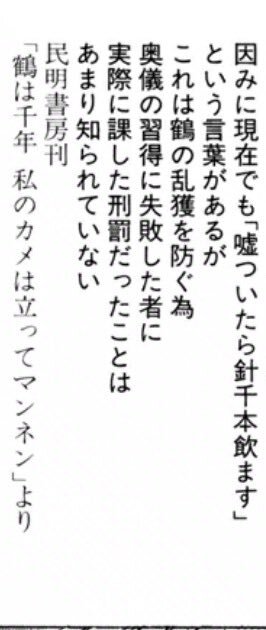 因みに現在でも「嘘ついたら針千本飲ます」
という言葉があるが
これは鶴の乱獲を防ぐ為
奥儀の習得に失敗した者に
実際に課した刑罰だったことは
あまり知られていない
民明書房刊
「鶴は千年 私のカメは立ってマンネン」より